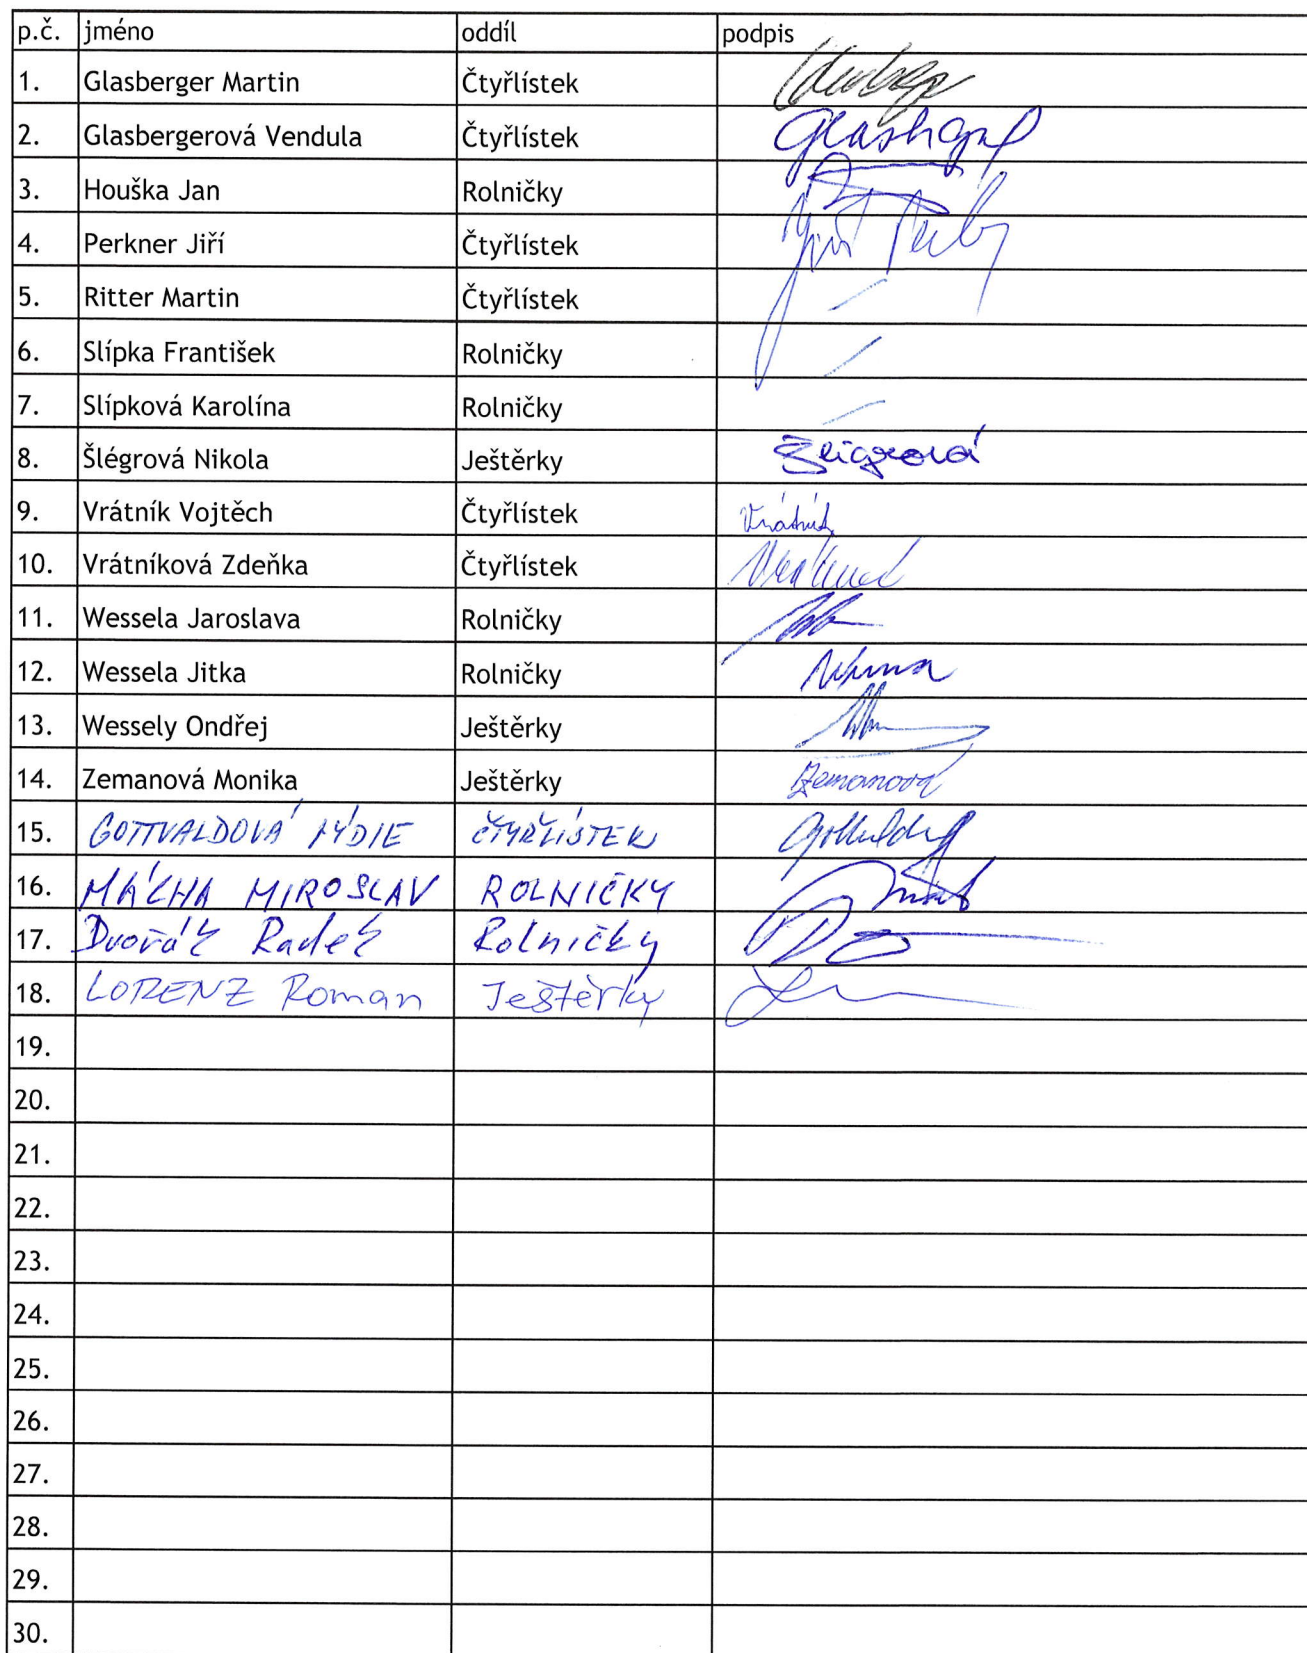 p.č. jméno oddíl podpis
1. Glasberger Martin Čtyřlístek
2. Glasbergerová Vendula Čtyřlístek
3. Houška Jan Rolničky
4. Perkner Jiří Čtyřlístek
5. Ritter Martin Čtyřlístek
6. Slípka František Rolničky
7. Slípková Karolína Rolničky
8. Šlégrová Nikola Ještěrky
9. Vrátník Vojtěch Čtyřlístek Vrátník
10. Vrátníková Zdeňka Čtyřlístek
11. Wessela Jaroslava Rolničky
12. Wessela Jitka Rolničky
13. Wessely Ondřej Ještěrky
14. Zemanová Monika Ještěrky Zemanová
15. GOTTVALDOVÁ LÝDIE ČTYŘLÍSTEK
16. MÁCHA MIROSLAV ROLNIČKY
17. Dvořák Radek Rolničky
18. LORENZ Roman Ještěrky
19.
20.
21.
22.
23.
24.
25.
26.
27.
28.
29.
30.